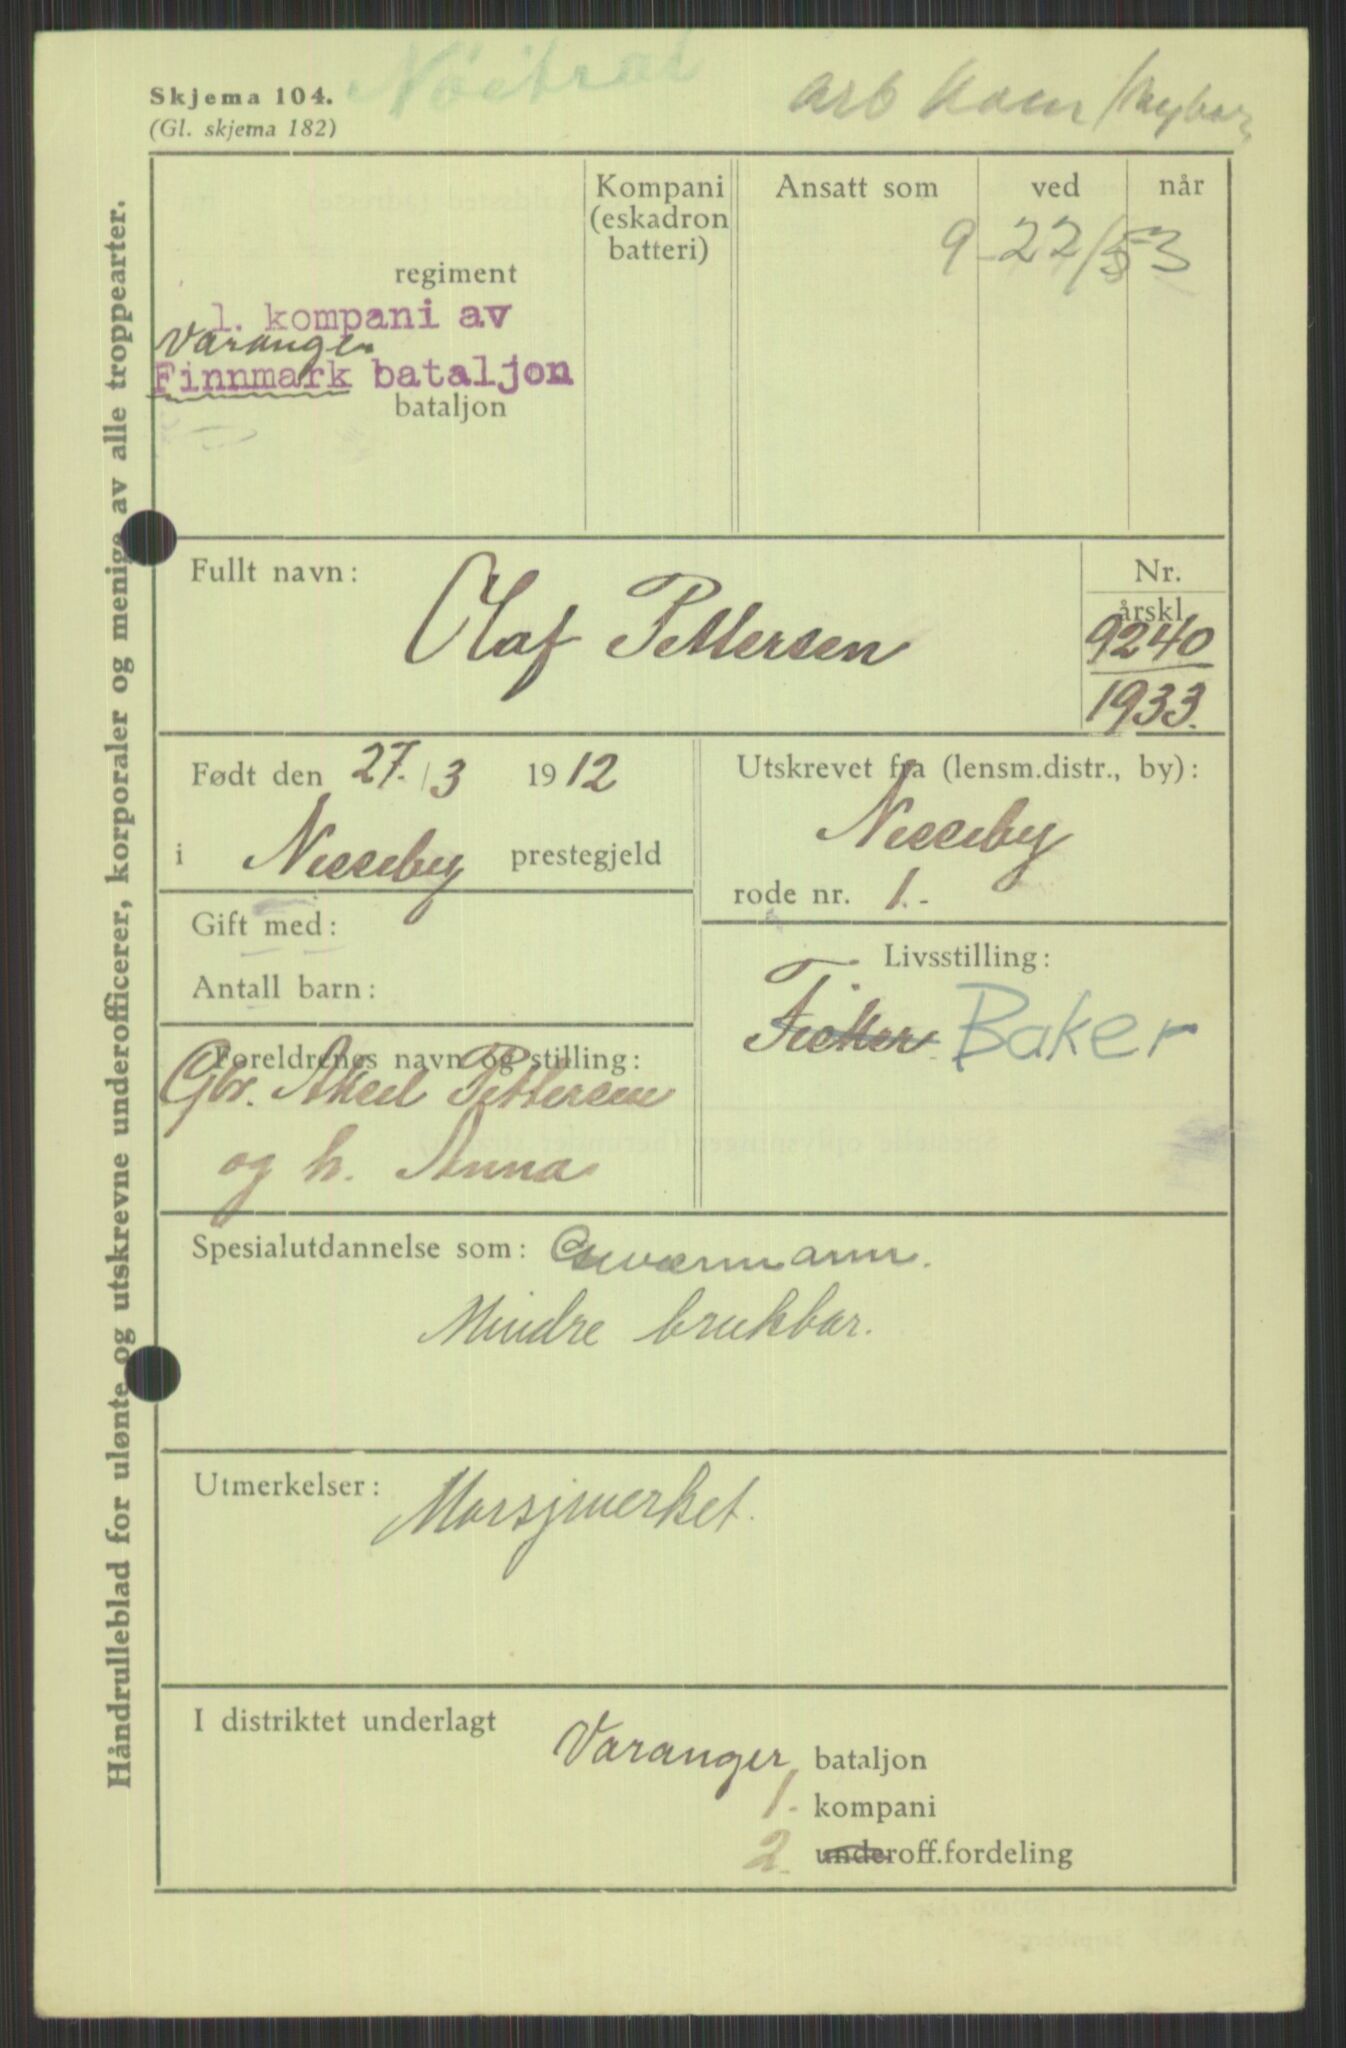 Skjema 104.
(Gl. skjema 182)
Nöitral
arb kom / Nyborg
Kompani
(eskadron
batteri)
Ansatt som
ved
når
9-22/53
regiment
1. kompani av
Varanger
Finnmark bataljon
bataljon
Fullt navn:
Olaf Pettersen
Nr.
årskl.
9240
1933.
Født den 27./3 1912
i Nesseby prestegjeld
Utskrevet fra (lensm.distr., by):
Nesseby
rode nr. 1.-
Gift med:
Antall barn:
Livsstilling:
Fisker Baker
Foreldrenes navn og stilling:
Gbr. Aksel Pettersen
og h. Anna
Spesialutdannelse som: Geværmann.
Mindre brukbar.
Utmerkelser: Marsjmerket.
I distriktet underlagt
Varanger bataljon
1. kompani
2. underoff.fordeling
Håndrulleblad for ulønte og utskrevne underofficerer, korporaler og menige av alle troppearter.